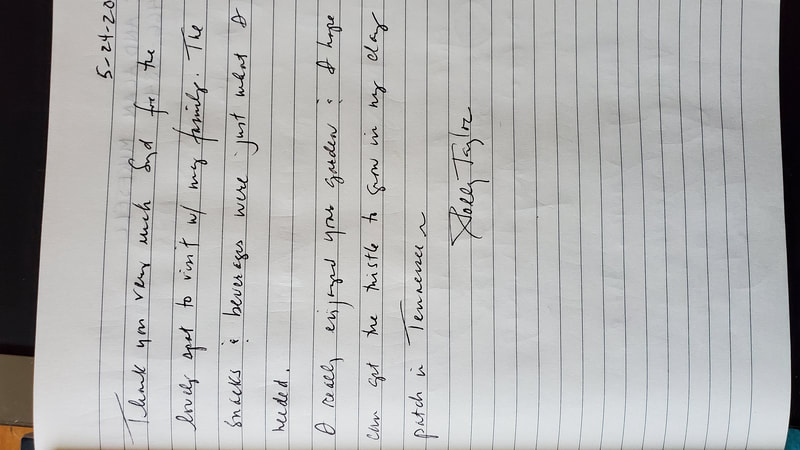 5-24-20
Thank you very much Syd for the
lovely spot to visit w/ my family. The
snacks & beverages were just what I
needed.
I really enjoyed your garden & I hope
can get the thistle to grow in my clay
patch in Tennessee ~
Polly Taylor